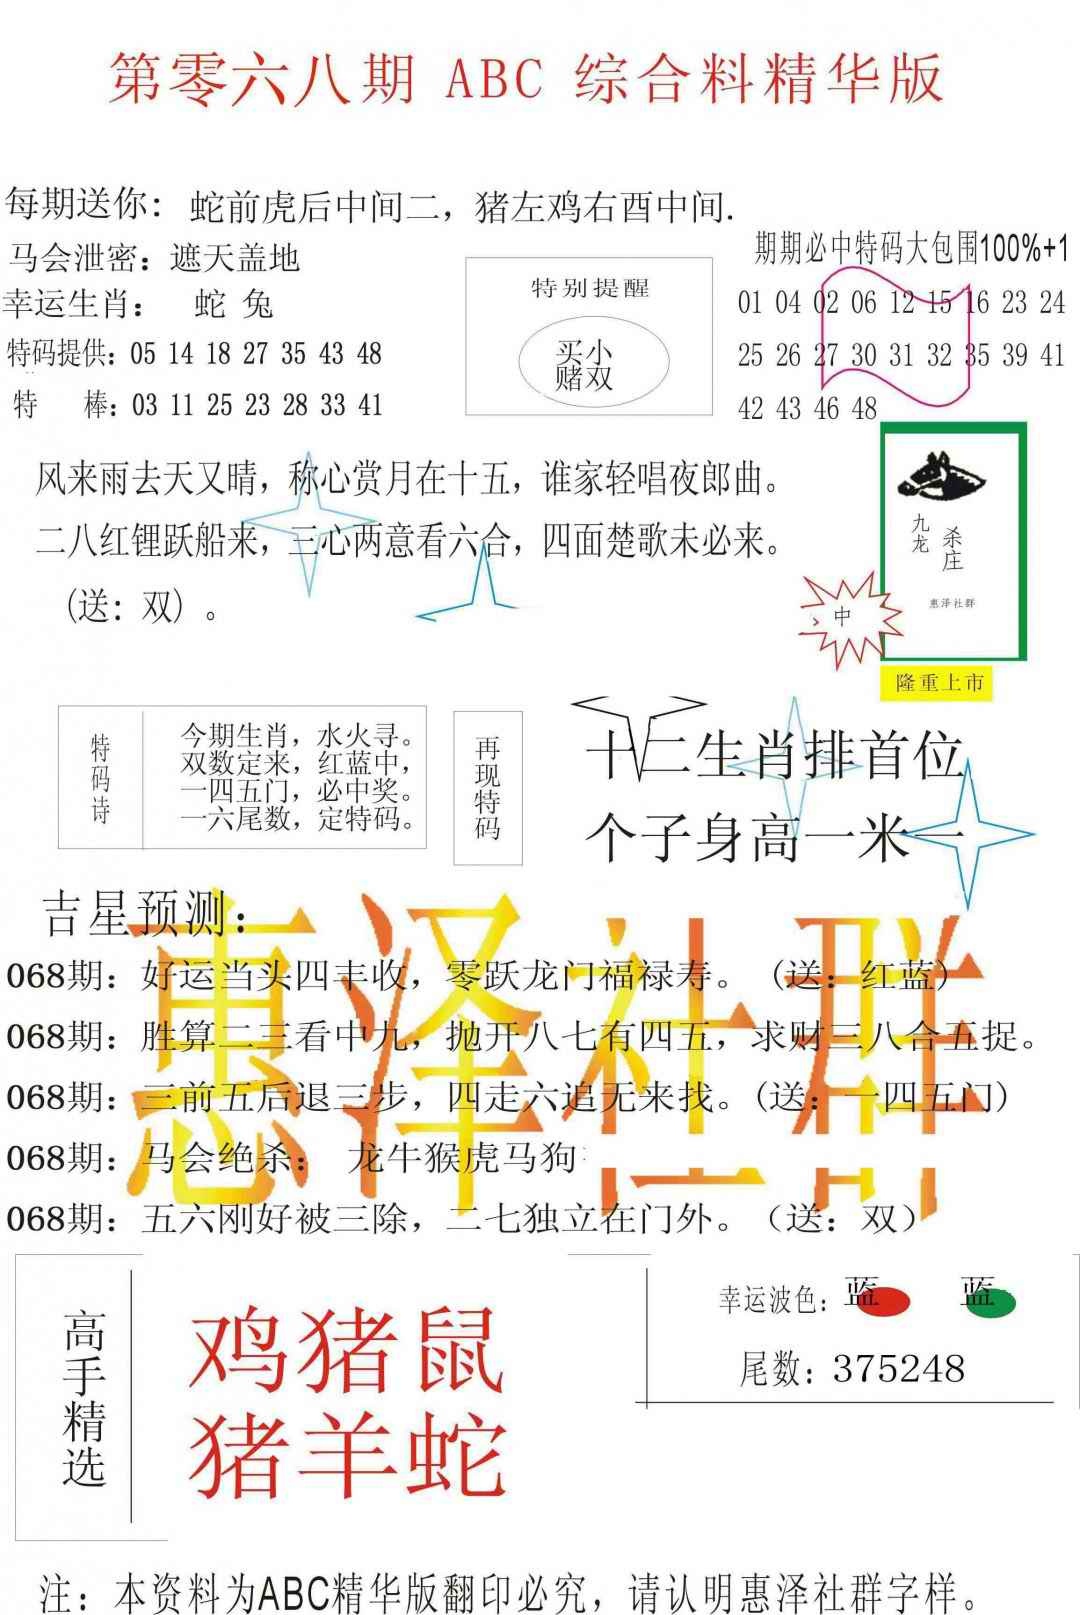 第零六八期 ABC 综合料精华版
每期送你：蛇前虎后中间二，猪左鸡右酉中间.
马会泄密：遮天盖地
幸运生肖： 蛇 兔
特码提供：05 14 18 27 35 43 48
特 棒：03 11 25 23 28 33 41
特别提醒
买小
赌双
期期必中特码大包围100%+1
01 04 02 06 12 15 16 23 24
25 26 27 30 31 32 35 39 41
42 43 46 48
风来雨去天又晴，称心赏月在十五，谁家轻唱夜郎曲。
二八红锂跃船来，三心两意看六合，四面楚歌未必来。
（送：双）。
九龙
杀庄
惠泽社群
中
隆重上市
特码诗
今期生肖，水火寻。
双数定来，红蓝中，
一四五门，必中奖。
一六尾数，定特码。
再现特码
十二生肖排首位
个子身高一米一
吉星预测：
惠泽社群
068期：好运当头四丰收，零跃龙门福禄寿。（送：红蓝）
068期：胜算二三看中九，抛开八七有四五，求财三八合五捉。
068期：三前五后退三步，四走六追无来找。(送：一四五门)
068期：马会绝杀： 龙牛猴虎马狗
068期：五六刚好被三除，二七独立在门外。（送：双）
高手精选
鸡猪鼠
猪羊蛇
幸运波色：蓝 蓝
尾数：375248
注：本资料为ABC精华版翻印必究，请认明惠泽社群字样。